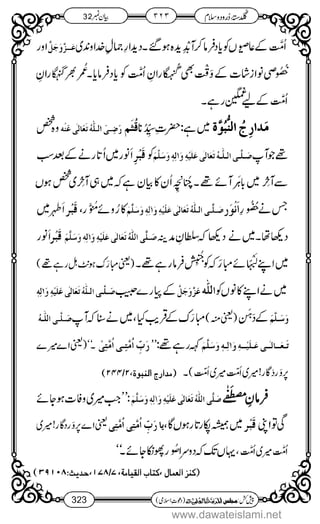 گلدستۂ درود و سلام ٣٢٣ بیان نمبر 32
اُمّت کے عاصیوں کو یاد فرماکر آبدیدہ ہوگئے۔ دیدارِ جمالِ خداوندی عَزَّوَجَلَّ اور
خُصُوصی نوازشات کے وَقت بھی گنہگارانِ اُمّت کو یاد فرمایا۔ عُمر بھر گنہگارانِ
اُمّت کے لیے غمگین رہے۔
مَدارِجُ النُّبُوَّۃ میں ہے: حضرتِ سیِّدُنا قُثَم رَضِیَ اللّٰہُ تَعَالٰی عَنْہُ وہ شخص
تھے جو آپ صَلَّی اللّٰہُ تَعَالٰی عَلَیْہِ وَاٰلِہٖ وَسَلَّمَ کو قَبْرِ اَنور میں اُتارنے کے بعد سب
سے آخر میں باہَر آئے تھے۔ چُنانچِہ اُن کا بیان ہے کہ میں ہی آخِری شخص ہوں
جس نے حُضُورِ اَنور صَلَّی اللّٰہُ تَعَالٰی عَلَیْہِ وَاٰلِہٖ وَسَلَّمَ کا رُوئے مُنَوَّر، قَبْرِ اَطہَر میں
دیکھا تھا۔ میں نے دیکھا کہ سلطانِ مدینہ صَلَّی اللّٰہُ تَعَالٰی عَلَیْہِ وَاٰلِہٖ وَسَلَّمَ قَبْرِ اَنور
میں اپنے لَبہائے مبارَکہ کو جُنبِش فرمارہے تھے۔ (یعنی مبارَک ہونٹ ہل رہے تھے)
میں نے اپنے کانوں کو اللّٰہ عَزَّوَجَلَّ کے پیارے حبیب صَلَّی اللّٰہُ تَعَالٰی عَلَیْہِ وَاٰلِہٖ
وَسَلَّمَ کے دَہَن (یعنی منہ) مبارَک کے قریب کیا، میں نے سنا کہ آپ صَلَّی اللّٰہُ
تَعَالٰی عَلَیْہِ وَاٰلِہٖ وَسَلَّمَ کہہ رہے تھے: ’’رَبِّ اُمَّتِیْ اُمَّتِیْ‘‘۔ (یعنی اے میرے
پروردگار! میری اُمّت میری اُمّت)۔ (مدارج النبوة، ٢/٤٤٢)
فرمانِ مُصطَفٰے صَلَّی اللّٰہُ تَعَالٰی عَلَیْہِ وَاٰلِہٖ وَسَلَّمَ: ’’جب میری وفات ہوجائے
گی تو اپنی قَبْر میں ہمیشہ پکارتا رہوں گا، یا رَبِّ اُمَّتِیْ اُمَّتِیْ یعنی اے پروردگار! میری
اُمّت میری اُمّت، یہاں تک کہ دوسرا صُور پھونکا جائے‘‘۔
(کنز العمال، کتاب القیامة، ٧/١٧٨، حدیث: ٣٩١٠٨)
323 پیش کش: مجلس المدینۃ العلمیۃ (دعوتِ اسلامی)
www.dawateislami.net